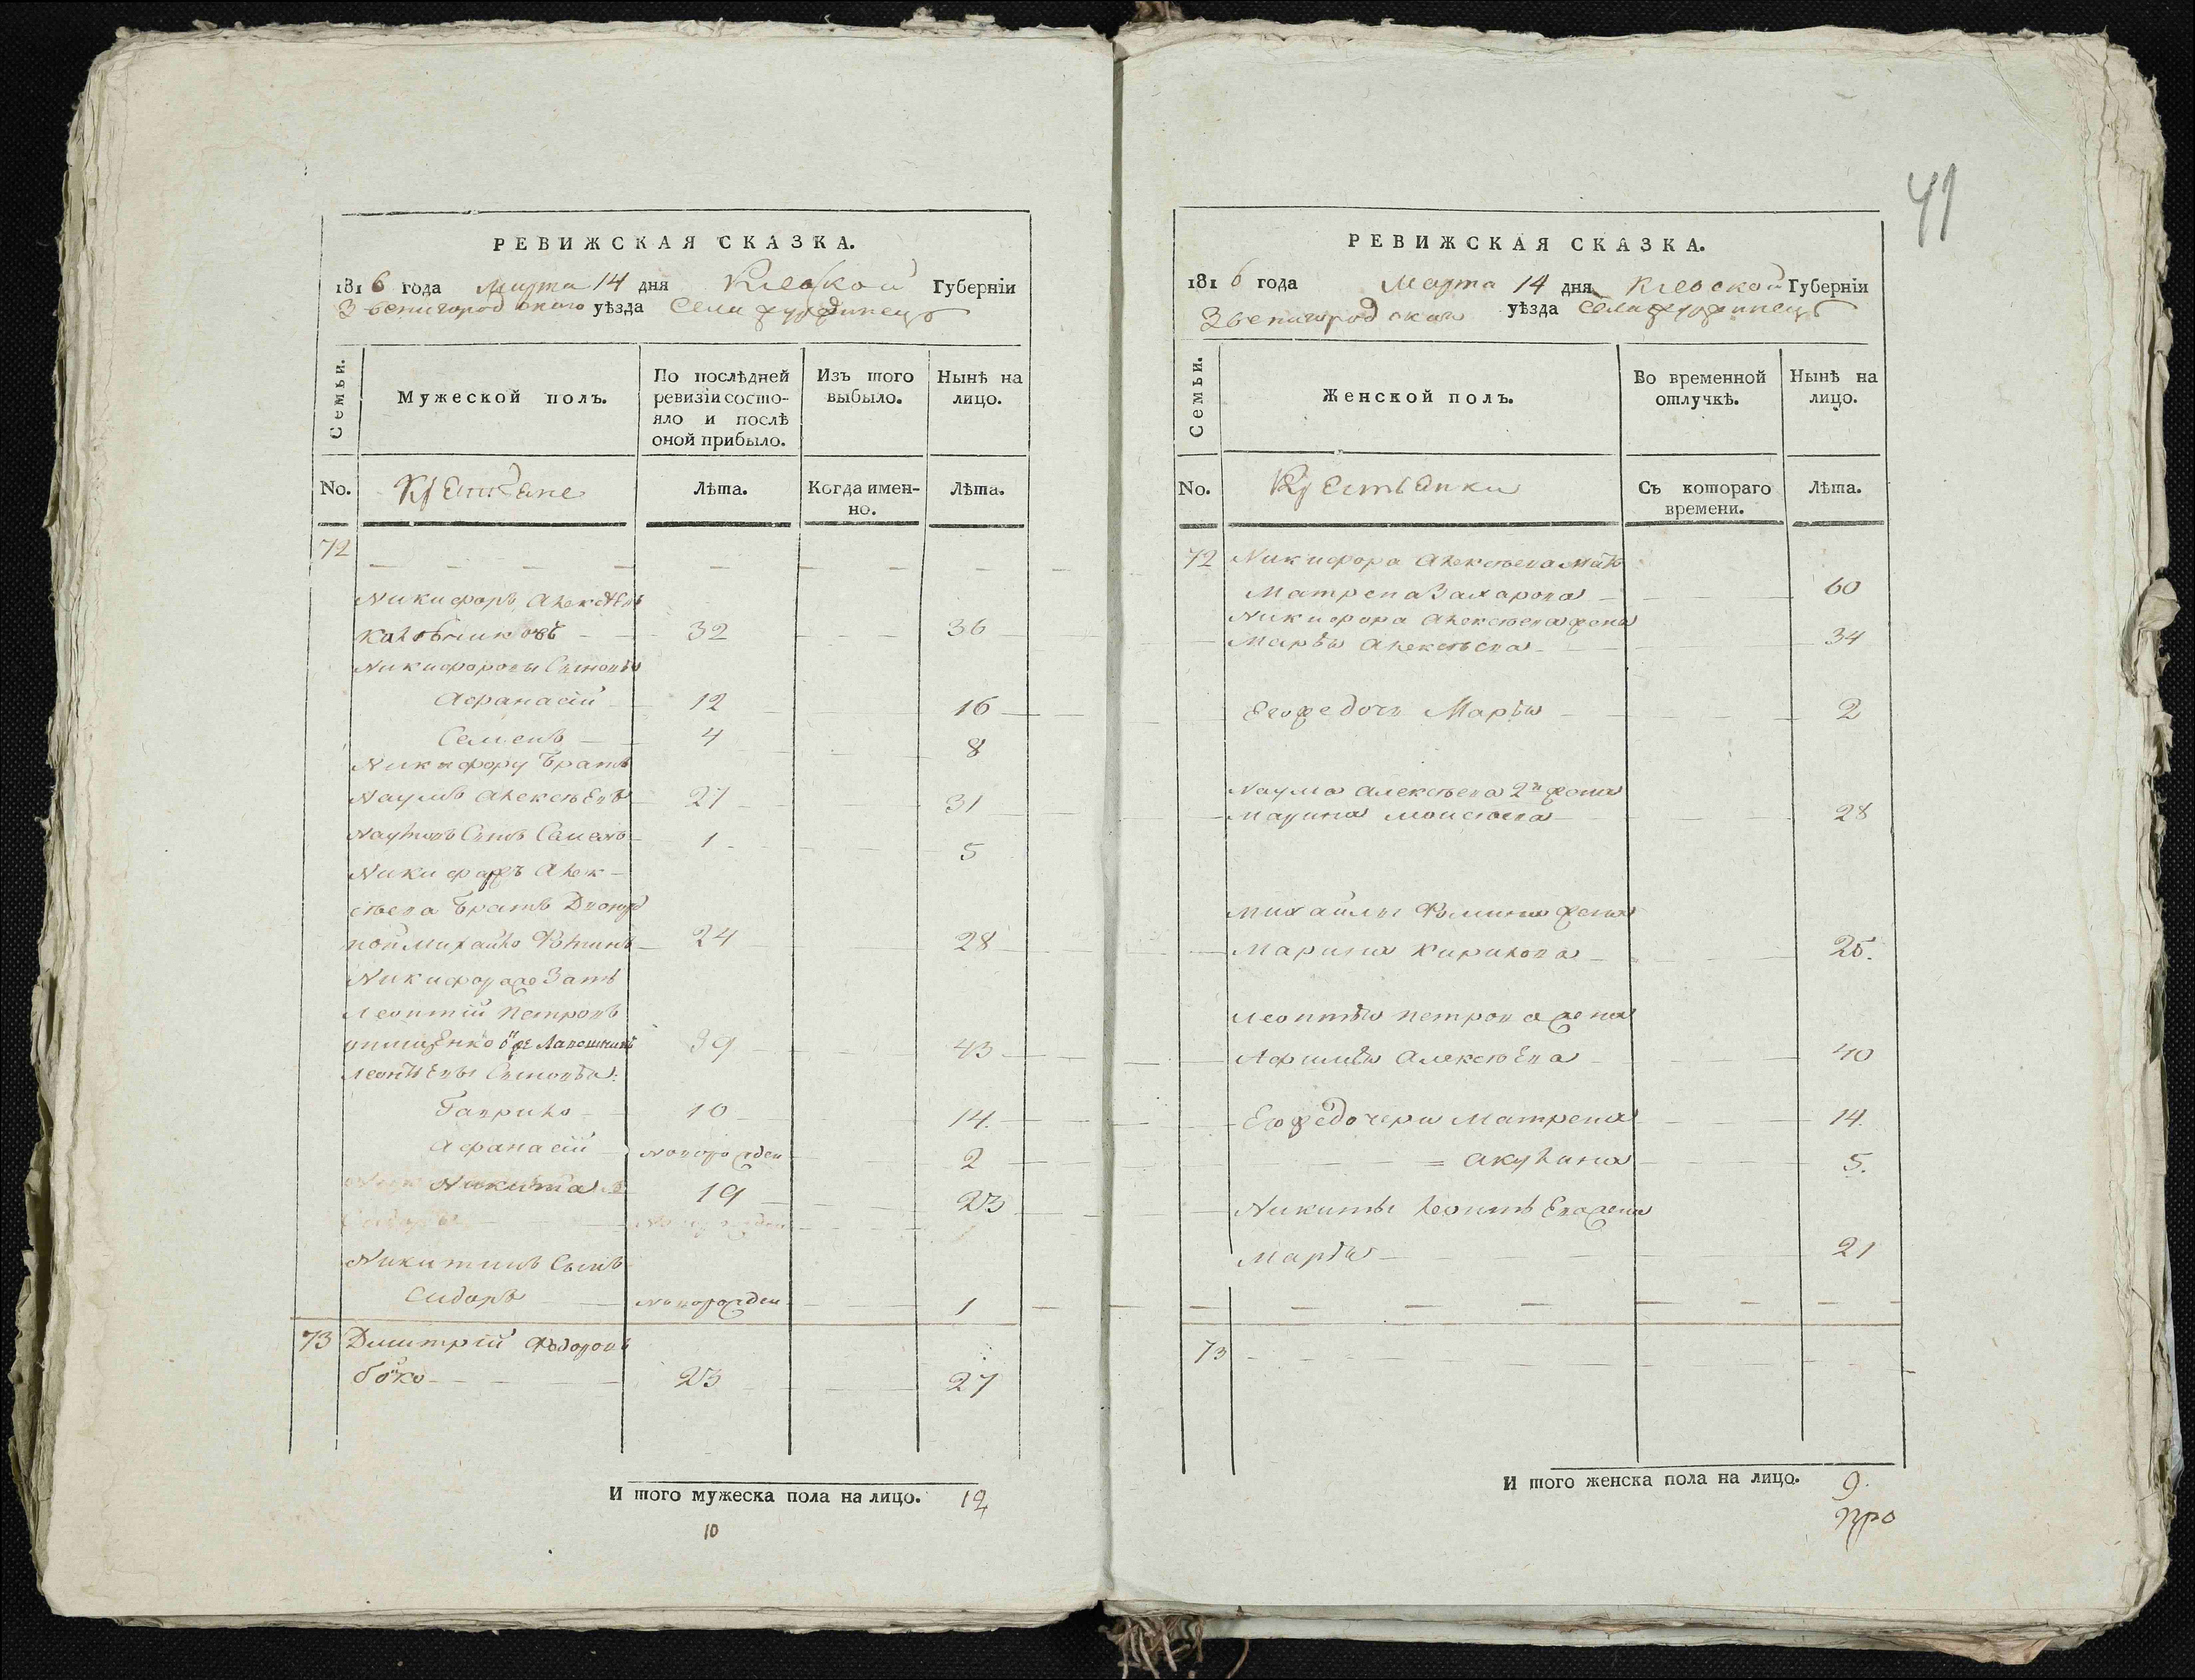 РЕВИЖСКАЯ СКАЗКА.
1816 года Марта 14 дня Киевской Губерніи
Звенигородского уѣзда Села
Семьи.
Мужеской полъ.
По послѣдней ревизіи состояло и послѣ оной прибыло.
Изъ того выбыло.
Нынѣ на лицо.
No.
Крестьяне
Лѣта.
Когда именно.
Лѣта.
72
Никифоръ Алексѣевъ
32 36
Никифоровы Сыновья
Афанасій 12 16
Семенъ 4 8
Никифору братъ
Наумъ Алексѣевъ 27 31
Наумовъ Сынъ Семенъ 1 5
Никифоръ Алек-
сѣева братъ
Михайло Фоминъ 24 28
Никифора же Зать
Леонтій Петровъ
онъ же Лапошникъ 39 43
Леонтьевы Сыновья:
Гаврило 10 14.
Афанасій новорожден 2
Никита 19 23
Никитинъ Сынъ
Сидоръ новорожден 1
73 Дмитрій Федоровъ
бойко 23 27
И того мужеска пола на лицо. 12
10
41
РЕВИЖСКАЯ СКАЗКА.
1816 года Марта 14 дня Киевской Губерніи
Звенигородского уѣзда Села
Семьи.
Женской полъ.
Во временной отлучкѣ.
Нынѣ на лицо.
No.
Крестьянки
Съ котораго времени.
Лѣта.
72 Никифора Алексѣева мать
Матрена Захарова 60
Никифора Алексѣева жена
Марья Алексѣева 34
Его же дочь Марья 2
Наума Алексѣева 2я жена
Марина Моисѣева 28
Михайлы Фомина жена
Марина Кирилова 25.
Леонтья Петрова жена
Афимья Алексѣева 40
Его же дочери Матрена 14.
= Акулина 5.
Никиты Леонтьева жена
Марья 21
73
И того женска пола на лицо. 9.